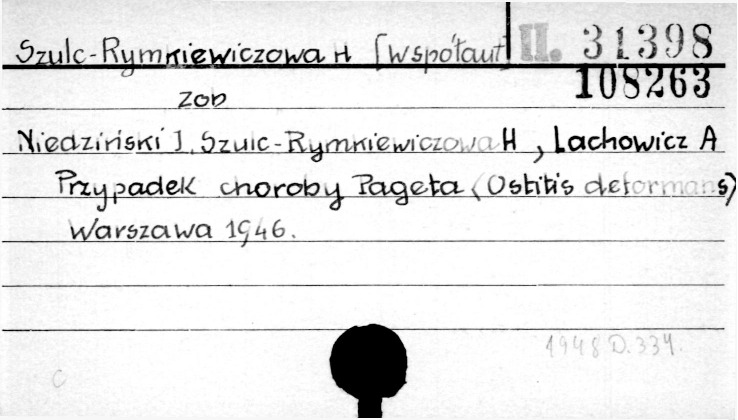 Szulc-Rymkiewiczowa H [współaut] II. 31398
108263
zob
Niedziński J, Szulc-Rymkiewiczowa H, Lachowicz A
Przypadek choroby Pageta (Ostitis deformans)
Warszawa 1946.
1948 D. 334.